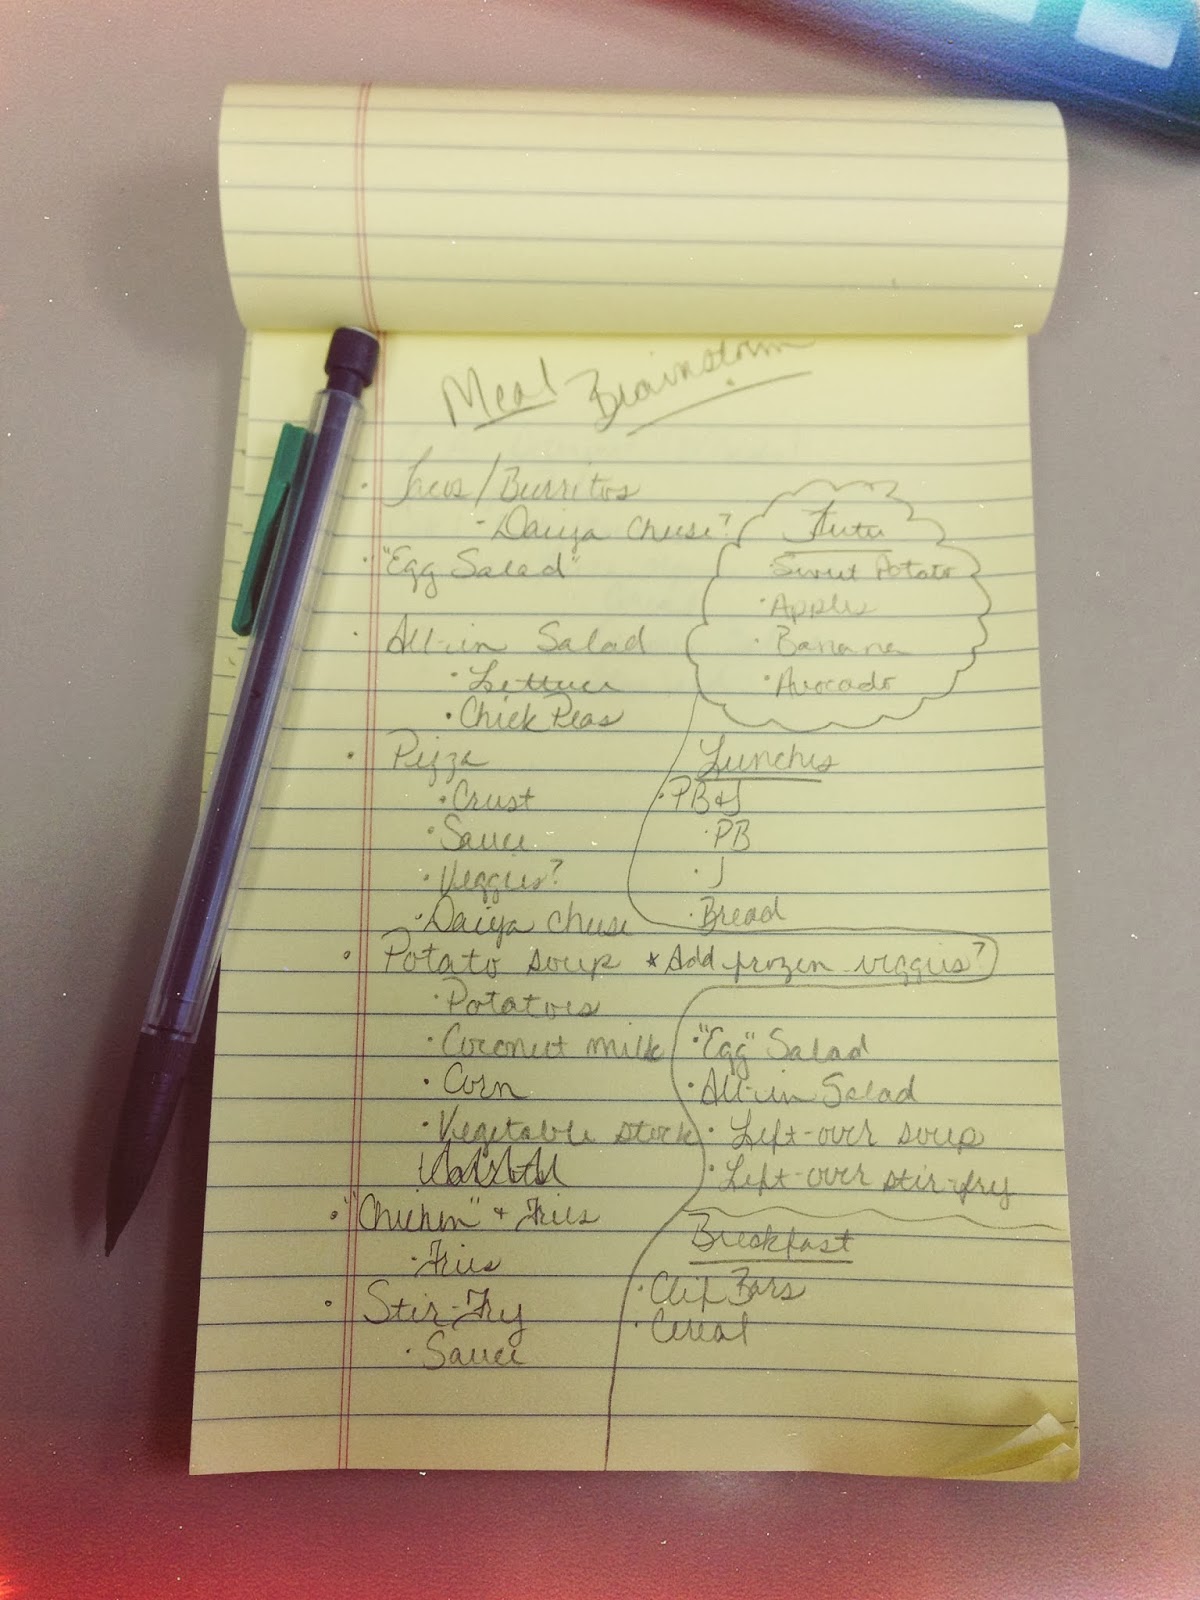 Meal Brainstorm
· Tacos/Burritos
- Daiya cheese?
· "Egg Salad"
· All-in Salad
· Lettuce
· Chick Peas
· Pizza
· Crust
· Sauce
· Veggies?
· Daiya cheese
· Potato soup * Add frozen veggies?
· Potatoes
· Coconut milk
· Corn
· Vegetable stock
· "Chicken" + Fries
· Fries
· Stir-Fry
· Sauce
· Sweet Potato
· Apples
· Banana
· Avocado
Lunches
· PB&J
· PB
· J
· Bread
· "Egg" Salad
· All-in Salad
· Left-over soup
· Left-over stir-fry
Breakfast
· Clif Bars
· Cereal